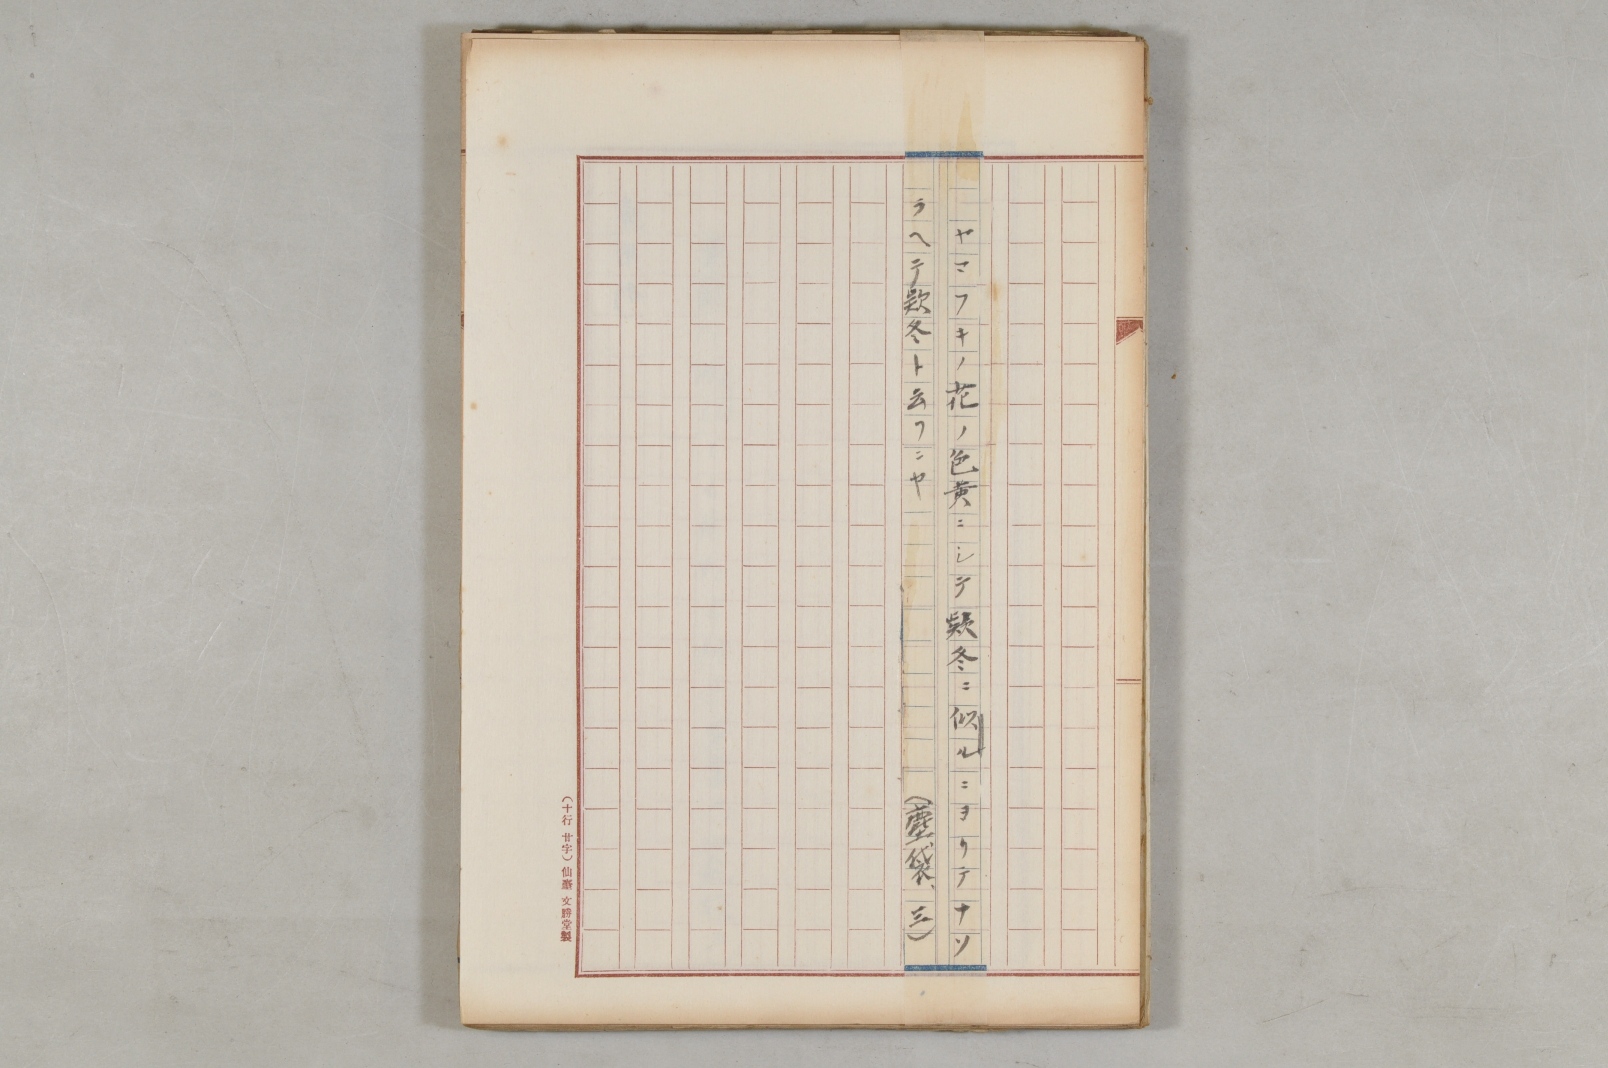 ヤマフキノ花ノ色黄ニシテ欵冬ニ似ルニヨリテナソ
ラヘテ欵冬ト云フニヤ
(塵袋、三)
(十行 廿字) 仙臺 文勝堂製